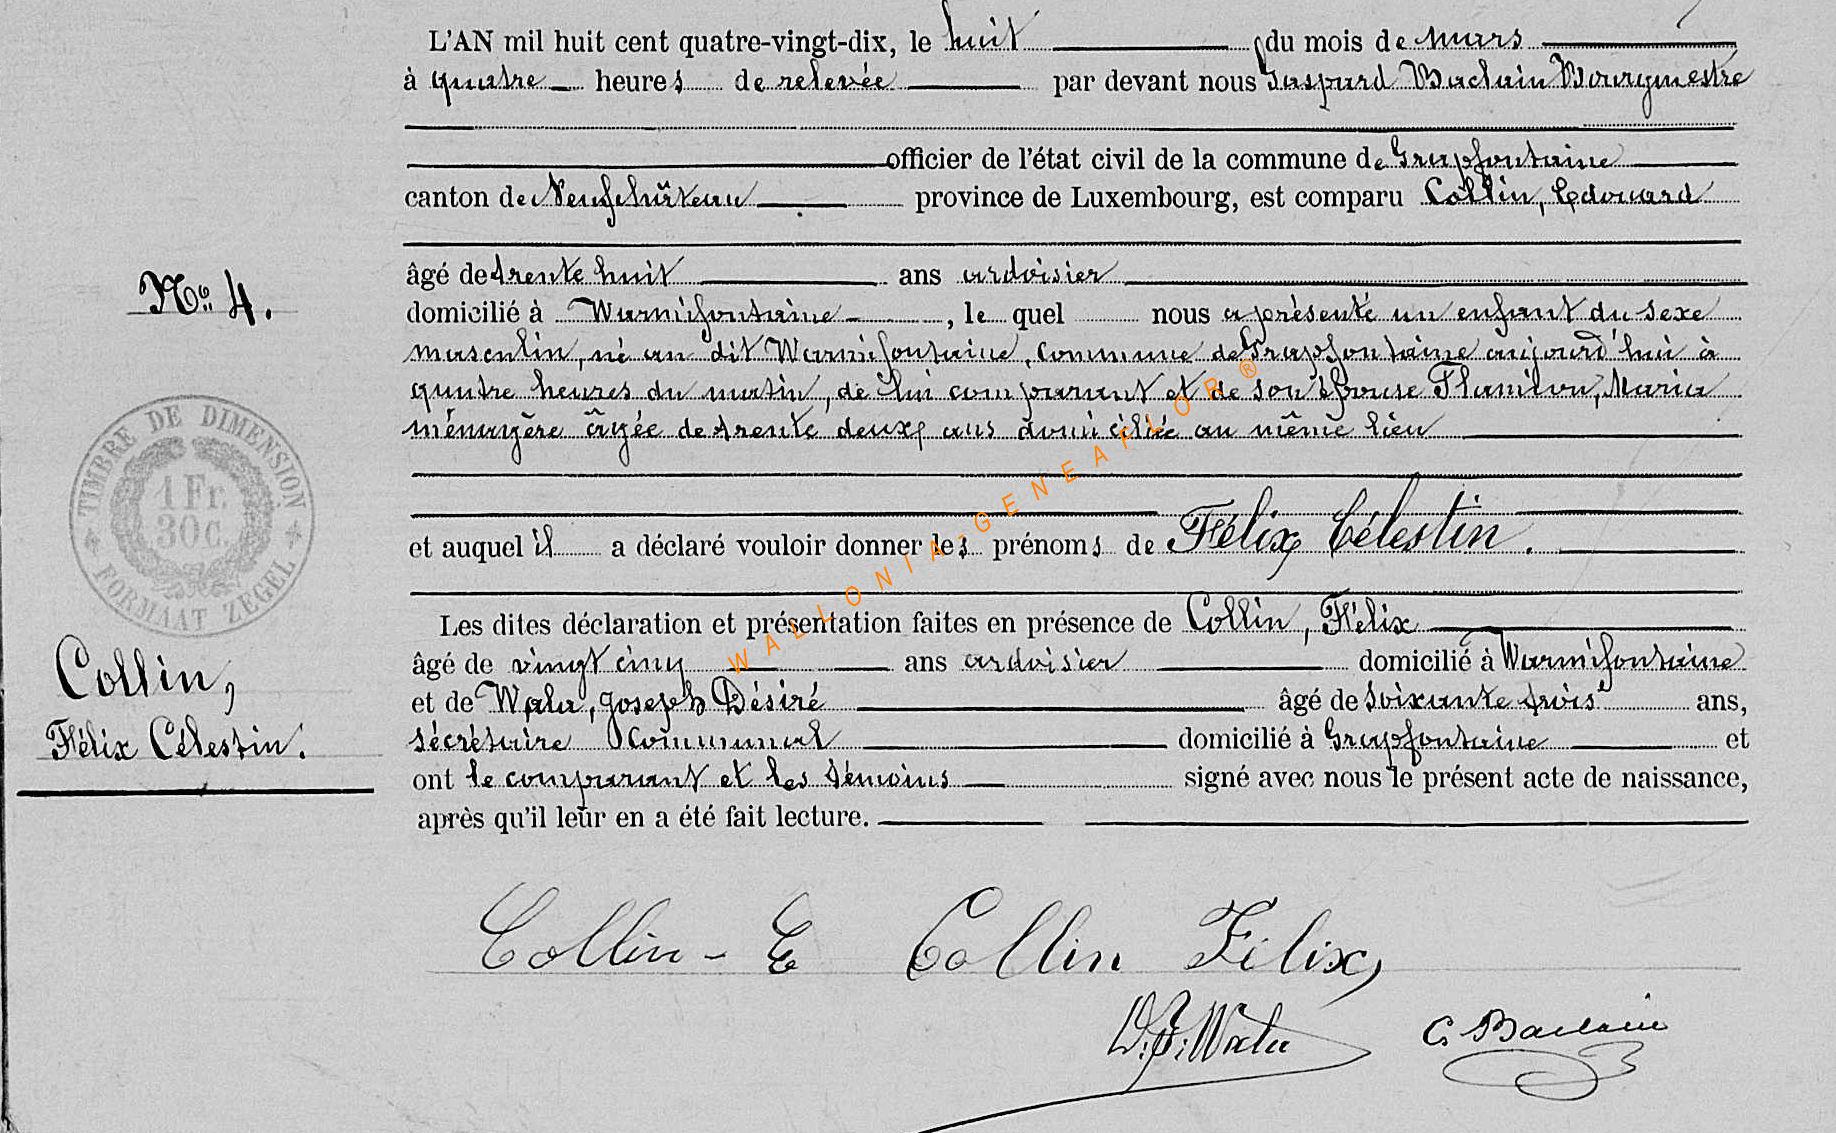 L'AN mil huit cent quatre-vingt-dix, le huit du mois de mars
à quatre heures de relevée par devant nous Gaspard Baclain Bourgmestre
officier de l'état civil de la commune de Grapfontaine
canton de Neufchâteau province de Luxembourg, est comparu Collin, Edouard
âgé de trente huit ans ardoisier
N° 4.
domicilié à Warmifontaine, le quel nous a présenté un enfant du sexe
masculin, né au dit Warmifontaine, commune de Grapfontaine aujourd'hui à
quatre heures du matin, de lui comparant et de son épouse Flamion, Maria
ménagère âgée de trente deux ans domiciliée au même lieu
TIMBRE DE DIMENSION
1 Fr.
30 c.
FORMAAT ZEGEL
et auquel il a déclaré vouloir donner les prénoms de Félix Célestin.
Les dites déclaration et présentation faites en présence de Collin, Félix
âgé de vingt cinq ans ardoisier domicilié à Warmifontaine
et de Wala, Joseph Désiré âgé de soixante trois ans,
sécrétaire communal domicilié à Grapfontaine et
ont le comparant et les témoins signé avec nous le présent acte de naissance,
après qu'il leur en a été fait lecture.
Collin,
Félix Célestin.
WALLONIA-GENEAFLOR®
Collin - E Collin Félix
D.J. Wala G. Baclain